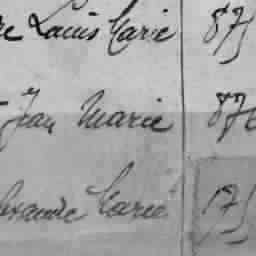 Louis Marie 875
Jean Marie 876
lexandre Marie 175